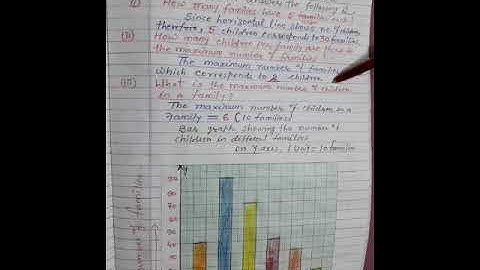 answers the following
(i) How many families have 5
Since horizontal line shows no of children
therefore, 5 children corresponds to 30 families.
(ii) How many children per family are there in
the maximum number of families
The maximum number of families
which corresponds to 2 children
(iii) What is the maximum number of children
in a family?
The maximum number of children in a
family = 6 (10 families)
Bar graph showing the number of
children in different families
on Y axis, 1 Unit = 10 families
90
80
70
60
50
40
30
number of families